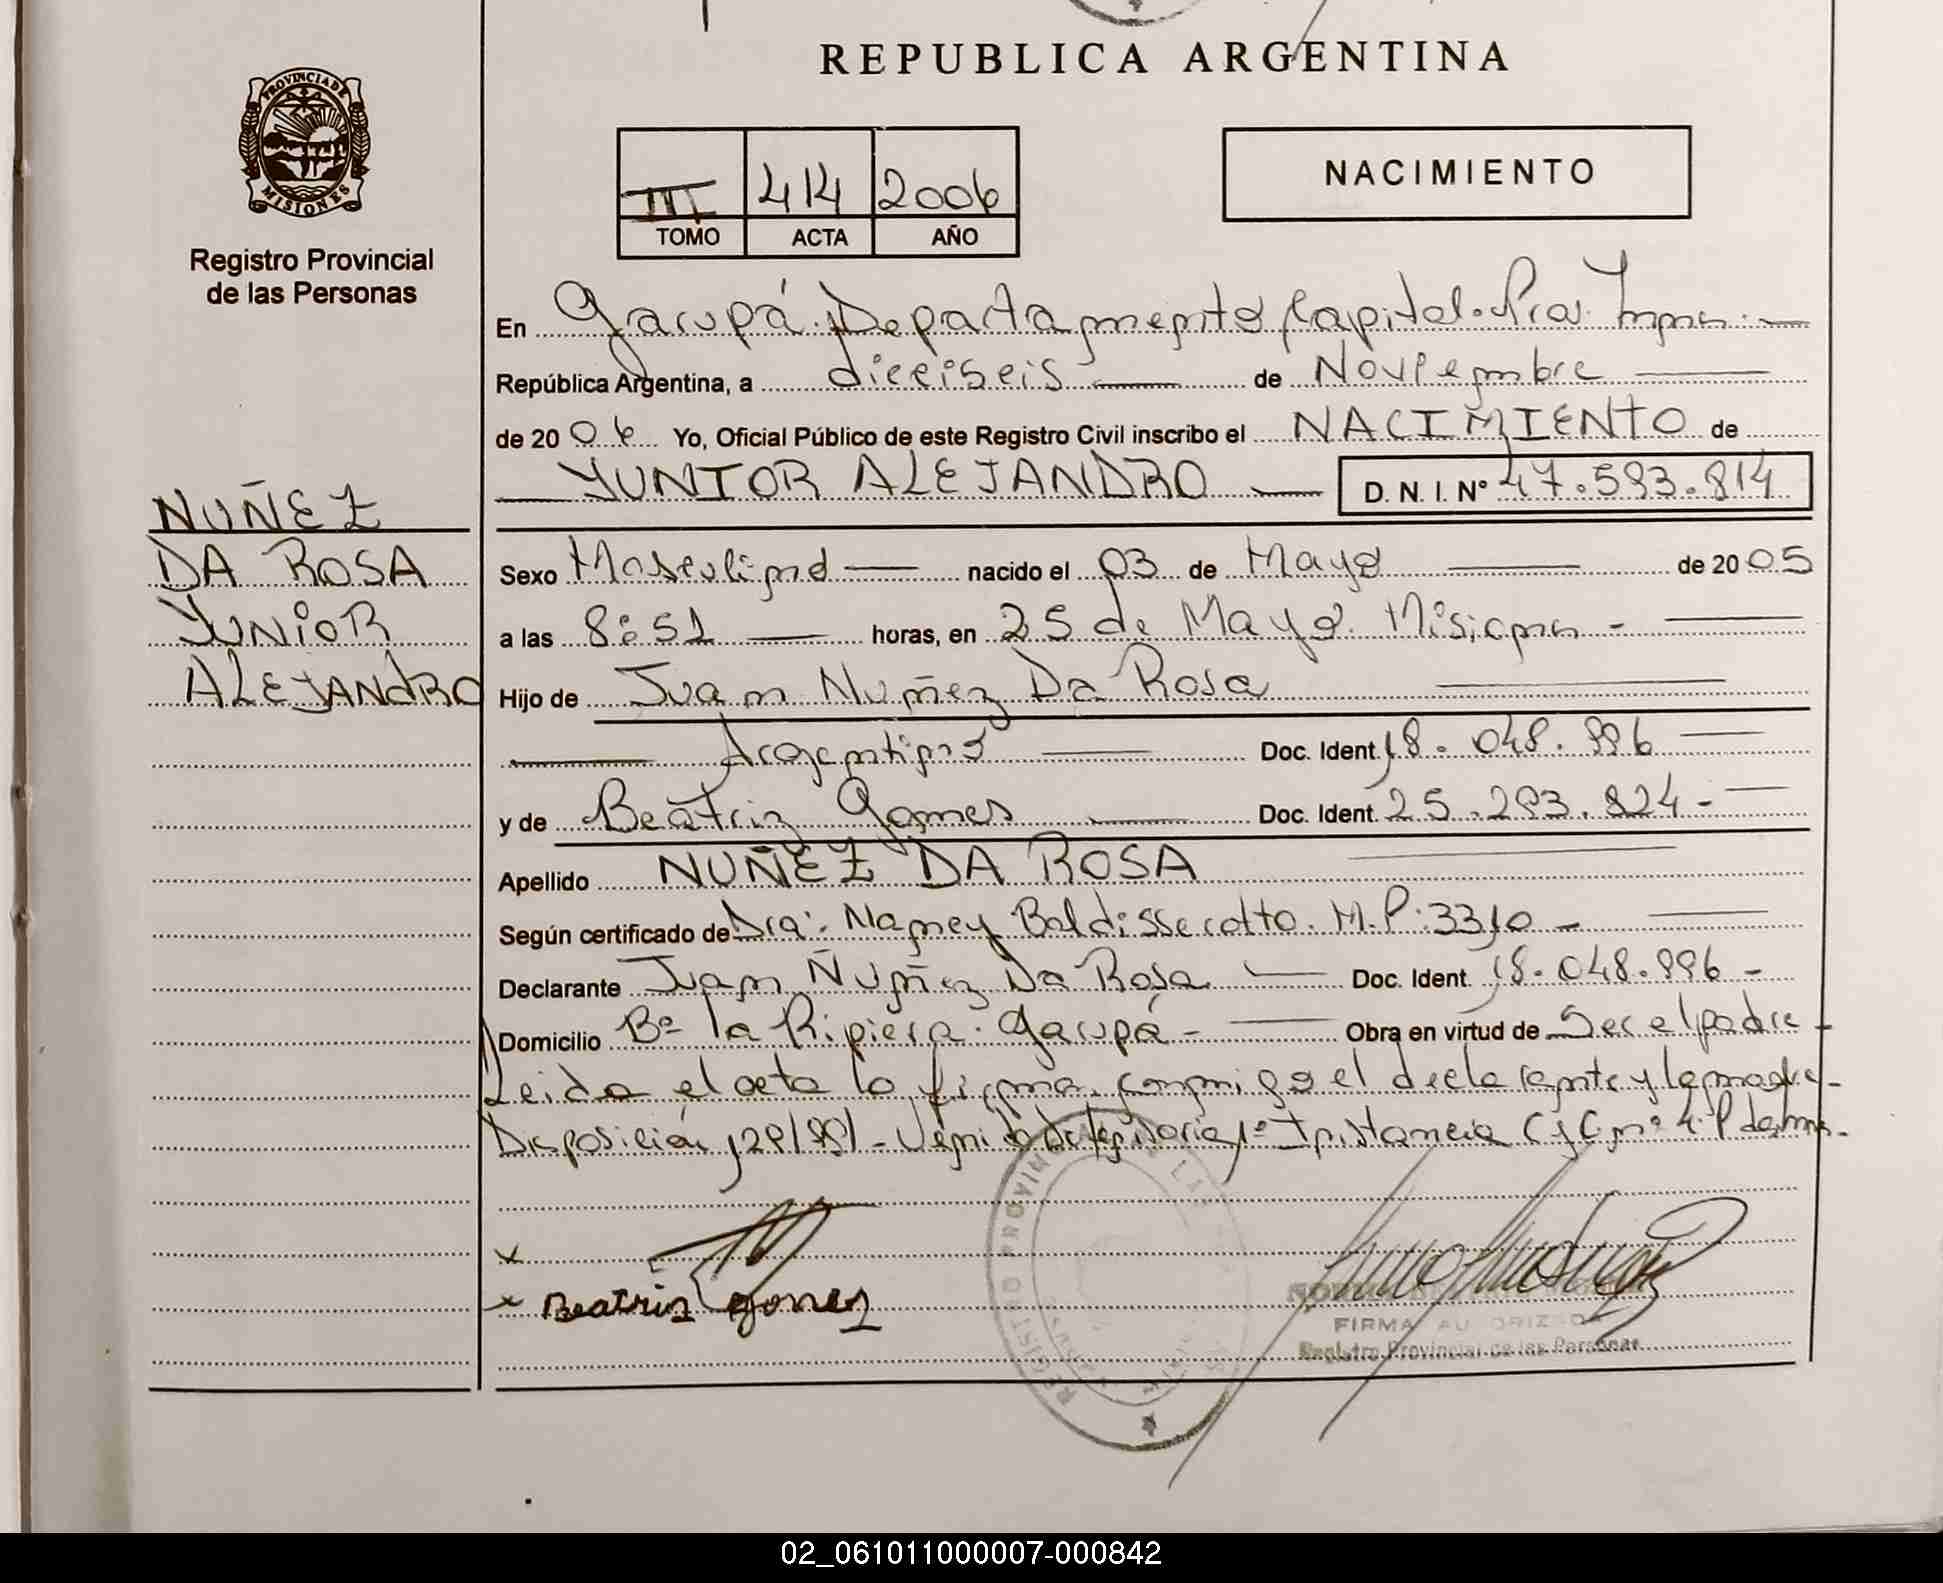 REPUBLICA ARGENTINA
PROVINCIA DE
MISIONES
Registro Provincial
de las Personas
III 414 2006
TOMO ACTA AÑO
NACIMIENTO
En Garupá. Departamento Capital. Pcia. Mnes.
República Argentina, a dieciseis de Noviembre
de 2006 Yo, Oficial Público de este Registro Civil inscribo el NACIMIENTO de
YUNIOR ALEJANDRO D. N. I. Nº 47.593.814
NUÑEZ
DA ROSA
YUNIOR
ALEJANDRO
Sexo Masculino nacido el 03 de Mayo de 2005
a las 8:51 horas, en 25 de Mayo. Misiones -
Hijo de Juan Nuñez Da Rosa
Argentino Doc. Ident. 18.048.996
y de Beatriz Gomes Doc. Ident. 25.293.824-
Apellido NUÑEZ DA ROSA
Según certificado de Dra: Nancy Baldisserotto. M.P: 3310 -
Declarante Juan Nuñez Da Rosa Doc. Ident. 18.048.996 -
Domicilio Bº la Ribiera. Garupá - Obra en virtud de Ser el padre
Leida el acta la firman conmigo el declarante y la madre-
Disposición 129/99/- 1º Instancia C y C nº 4.
x
x Beatriz gomez
REGISTRO PROVINCIAL DE LAS
FIRMA AUTORIZADA
Registro Provincial de las Personas
02_061011000007-000842